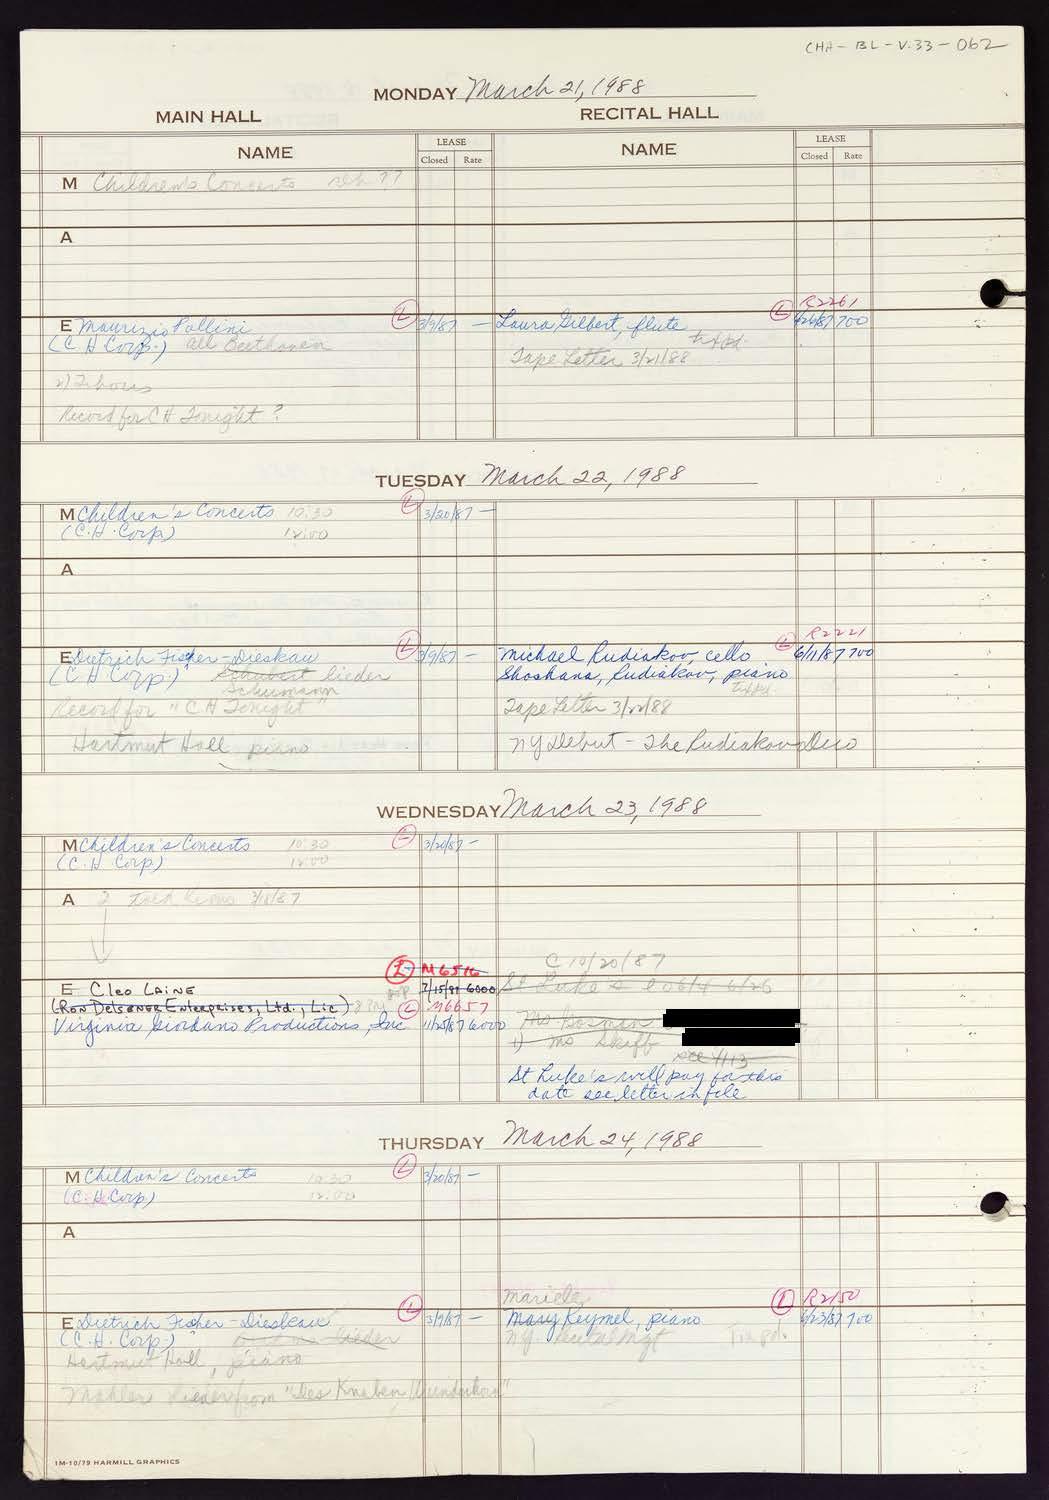 CHA-BL-V.33-062
MONDAY March 21, 1988
MAIN HALL
RECITAL HALL
NAME
LEASE
Closed Rate
NAME
LEASE
Closed Rate
M Children's Concerts reh ??
A
R2261
E Maurizio Pollini L 3/9/87 — Laura Gilbert, flute L 700
(C.H Corp.) all Beethoven
Tape Letter 3/21/88
2) 7 hours
Record for CH Tonight ?
TUESDAY March 22, 1988
M Children's Concerts 10:30 L 3/20/87 —
(C.H. Corp) 12:00
A
R2221
E Dietrich Fischer-Dieskau L 3/9/87 — Michael Rudiakov, cello L 6/11/87 700
(C.H Corp) Schubert lieder Shoshana, Rudiakov, piano
Schumann
Record for "C.H Tonight" Tape Letter 3/22/88
Hartmut Holl piano NY Debut - The Rudiakov Duo
WEDNESDAY March 23, 1988
M Children's Concerts 10:30 L 3/20/87 —
(C.H Corp) 12:00
A 3/18/87
L M6516 C 10/20/87
E Cleo Laine 7/15/87 6000 St Luke's
(Ron Delsener Enterprises, Ltd., Lic) 8PM L M6657
Virginia Giordano Productions, Inc 11/25/87 6000 Ms
1) Ms Skaff
see 4/13
St Luke's will pay for this
date see letter in file
THURSDAY March 24, 1988
M Children's Concerts 10:30 L 3/20/87 —
(C.H. Corp) 12:00
A
Mariele
L R2150
E Dietrich Fischer-Dieskau L 3/9/87 — Mary Keymel, piano 6/23/87 700
(C.H. Corp.) lieder NY. Recital Mgt
Hartmut Holl, piano
Mahler Lieder from "Des Knaben Wunderhorn"
1M-10/79 HARMILL GRAPHICS